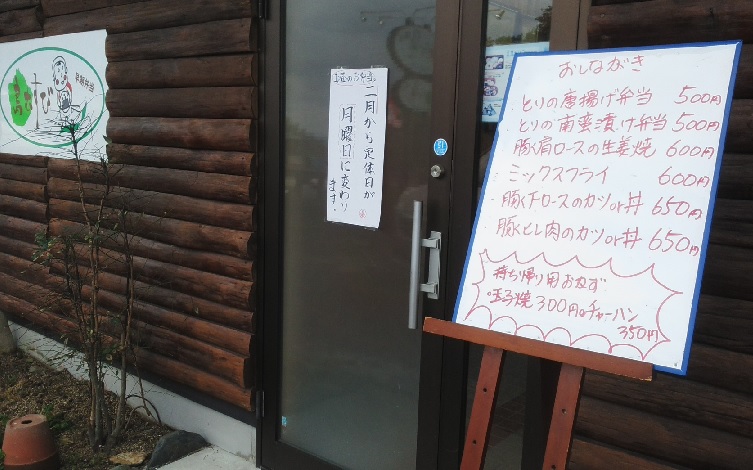 早朝弁当
二月から定休日が
月曜日に変わり
ます。
おしながき
とりの唐揚げ弁当 500円
とりの南蛮漬け弁当 500円
豚肩ロースの生姜焼 600円
ミックスフライ 600円
豚肩ロースのカツor丼 650円
豚ヒレ肉のカツor丼 650円
持ち帰り用おかず
玉子焼300円 チャーハン
350円